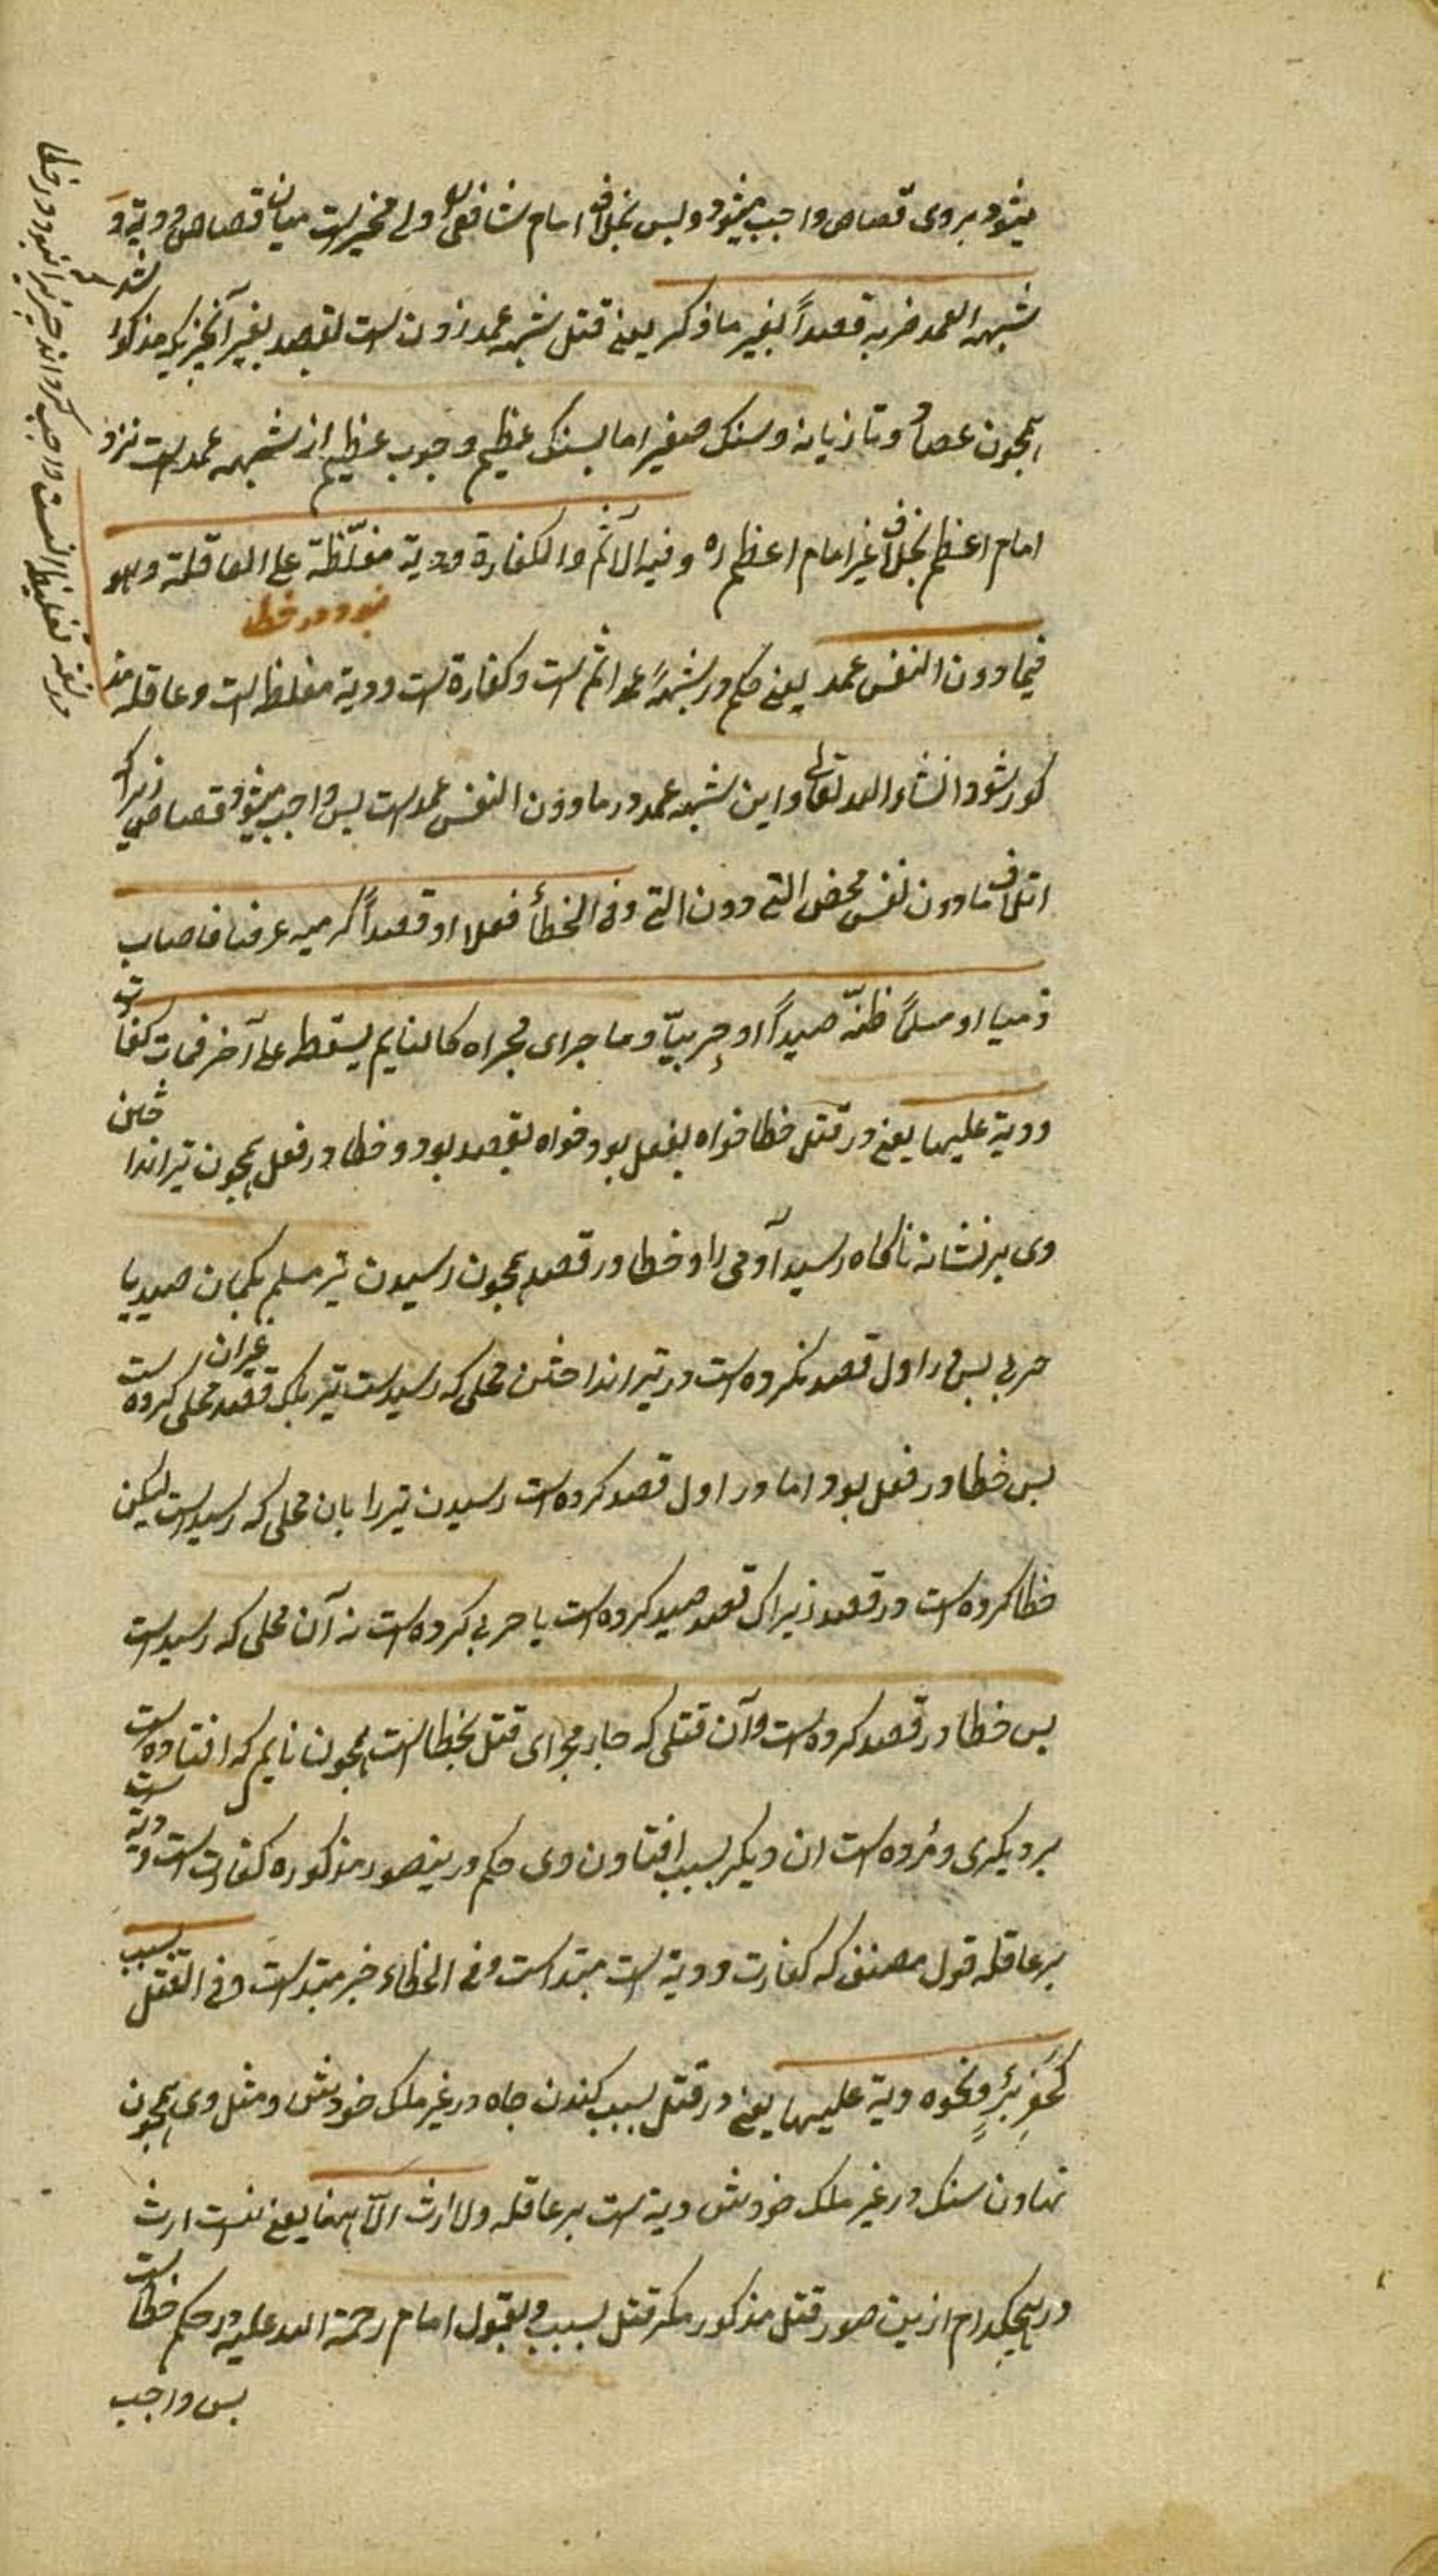 میشود بر وی قصاص واجب میشود و بس بخلاف امام شافعی ولی مخیر است میان قصاص و دیة و
شبهه العمد ضربه قصداً بغیر ما ذکر یعنی قتل شبهه عمد زدن است بقصد بغیر آنچیزیکه مذکور شد
همچون عصا و تازیانه و سنک صغیر اما بسنک عظیم و چوب عظیم از شبهه عمد است نزد
امام اعظم بخلاف غیر امام اعظم ره و فیه الاثم والکفارة ودیة مغلّظة علی العاقلة وهو
فیما دون النفس عمد یعنی حکم در شبهه عمد اثم است و کفارة است و دیة مغلظ است و عاقله مذ
کور شود انشاء الله تعالی و این شبهه عمد در ما دون النفس عمد است پس واجب میشود قصاص زیراکه
اتلاف ما دون نفس محض التی دون التی وفی الخطأ فعلا او قصداً کرمیه غرضا فاصاب
ذمیا او مسلماً ظنّه صیداً او حربیّاً وما جرای مجراه کالنایم یسقط علی آخر فمات کفارت
ودیة علیها یعنی در قتل خطا خواه بفعل بود خواه بقصد بود و خطا در فعل همچون تیر انداختن
وی بر نشانه ناکاه رسید آدمی را و خطا در قصد همچون رسیدن تیر مسلم بکمان صید یا
حربی پس در اول قصد نکرده است در تیر انداختن محلی که رسید است تیر بلک قصد محلی غیر آن کرده است
پس خطا در فعل بود اما در اول قصد کرده است رسیدن تیر را بان محلی که رسید است لیکن
خطا کرده است در قصد زیراک قصد صید کرده است یا حربی کرده است نه آن محلی که رسید است
پس خطا در قصد کرده است و آن قتلی که جار مجرای قتل بخطا است همچون نایم که افتاده است
بر دیکری و مُرده است ان دیکر بسبب افتادن وی حکم درینصور مذکوره کفارت است و دیة است
بر عاقله قول مصنف که کفارت و دیة است مبتد است وفی الخطاء خبر مبتد است وفی القتل بسبب
کحفرِ بئرٍ ونحوه دیة علیها یعنی در قتل بسبب کندن چاه در غیر ملک خودش و مثل وی همچون
نهادن سنک در غیر ملک خودش دیة است بر عاقله ولا ارث الّا هنا یعنی نیست ارث
در هیچکدام ازین صور قتل مذکور مکر قتل بسبب و بقول امام رحمة الله علیه در حکم خطا است
پس واجب
نبود در خطا